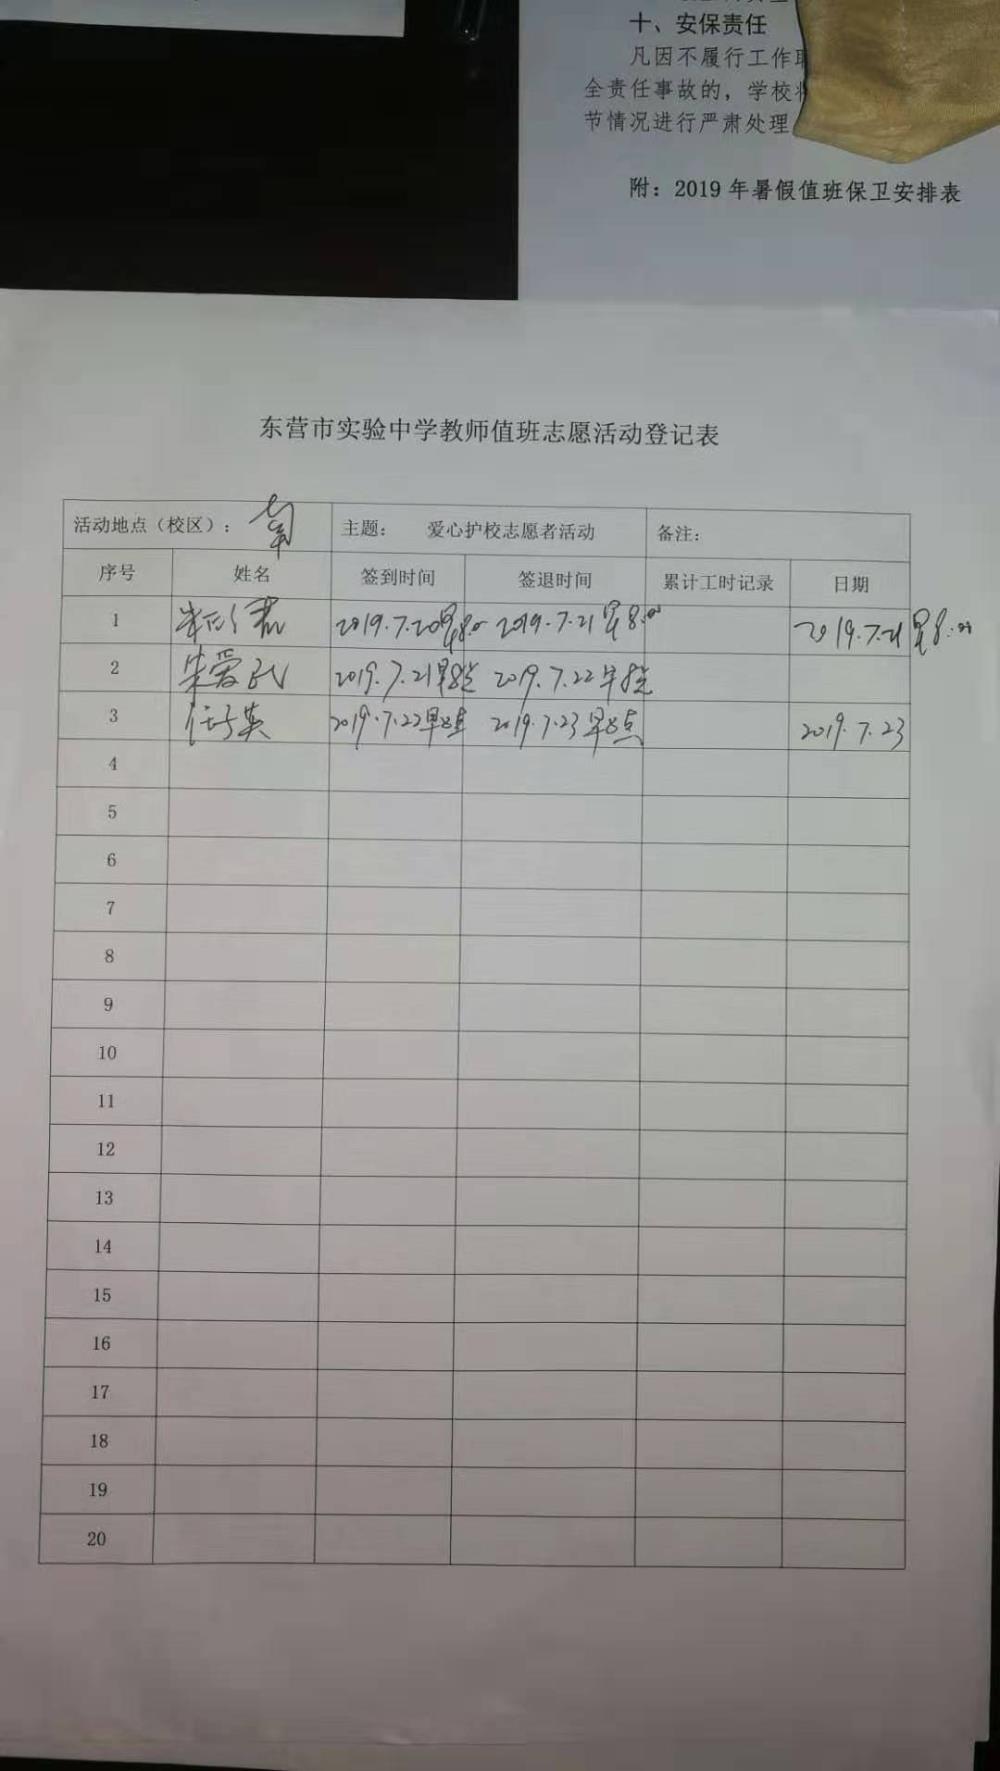 十、安保责任
凡因不履行工作
全责任事故的，学校
节情况进行严肃处理
附：2019 年暑假值班保卫安排表
东营市实验中学教师值班志愿活动登记表
活动地点（校区）： 主题： 爱心护校志愿者活动 备注：
序号 姓名 签到时间 签退时间 累计工时记录 日期
1 2019.7.20早8:00 2019.7.21早8:00 2019.7.21早8:00
2 朱爱民 2019.7.21早8点 2019.7.22早8点
3 任子英 2019.7.22早8点 2019.7.23早8点 2019.7.23
4
5
6
7
8
9
10
11
12
13
14
15
16
17
18
19
20